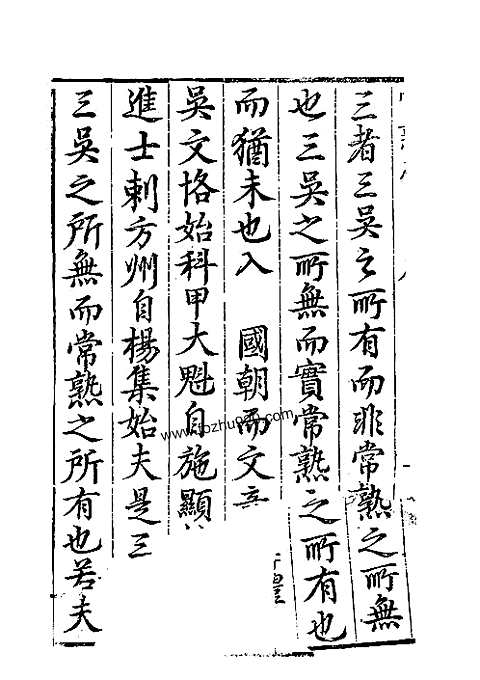 三者三吳之所有而非常熟之所無
也三吳之所無而實常熟之所有也
而猶未也入　國朝而文
吳文恪始科甲大魁自施顯
進士刺方州自楊集始夫是三
三吳之所無而常熟之所有也若夫